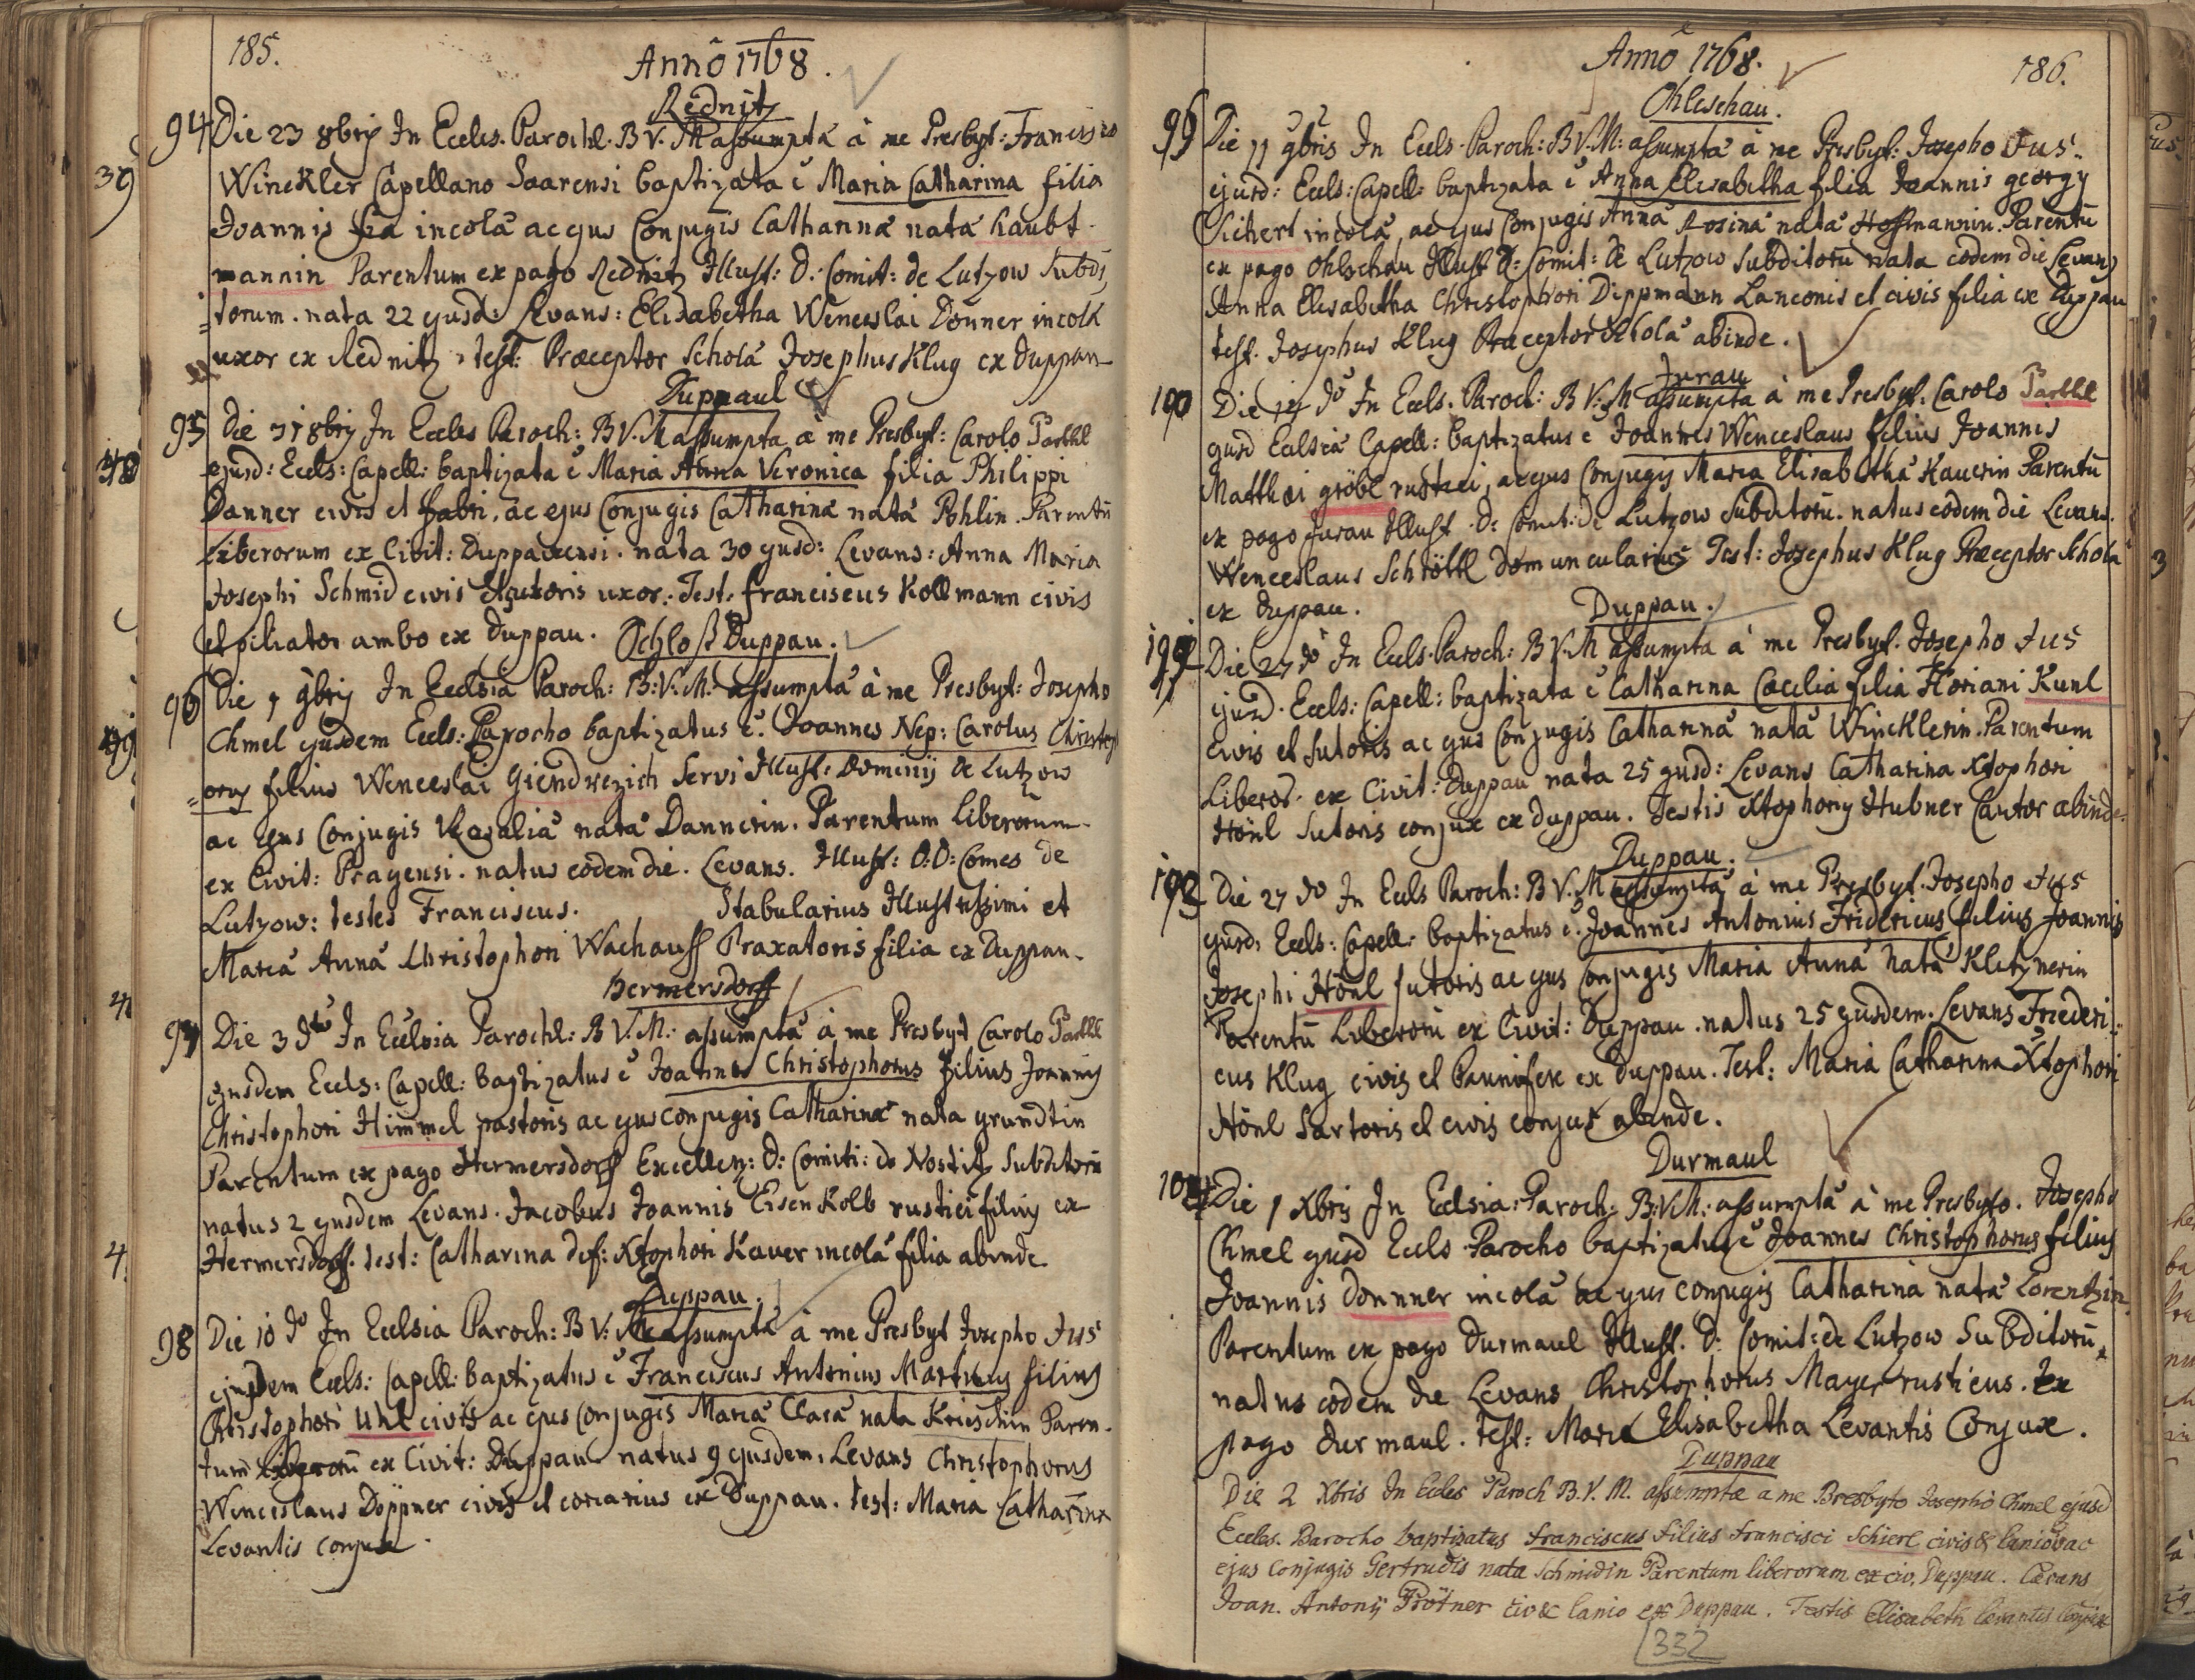 185.
Anno 1768.
Rednitz
94 Die 23 8brij In Eccles. Parochl. B V. M assumpta à me Presbyt: Francisco
39
Winckler Capellano Saarensi baptizata ē Maria Catharina filia
Joannis incolâ ac ejus Conjugis Catharina nata Haubt-
mannin Parentum ex pago Rednitz Illust: D: Comit: de Lutzow Subdi
=torum. nata 22 ejusd: Levans: Elisabetha Wenceslai Donner incolâ
uxor ex Rednitz, test: Præceptor Schola Josephus Klug ex Duppau
Duppau
95 Die 31 8brij In Eccles Paroch: B V. M assumpta à me Presbyt: Carolo
ejusd: Eccls: Capell: baptizata ē Maria Anna Veronica filia Philippi
Danner civis et fabri, ac ejus Conjugis Catharina natâ Pohlin. Parentū
Liberorum ex Civit: Duppaviensi. nata 30 ejusd: Levans: Anna Maria
Josephi Schmid civis uxor. Test. Franciscus Kollmann civis
et pileator ambo ex Duppau. Schloß Duppau.
96 Die 1 9brij In Ecclsia Paroch: B: V. M: assumptâ à me Presbyt: Josepho
Chmel ejusdem Eccls: Parocho baptizatus ē. Joannes Nep: Carolus Christop
=orus filius Wenceslai Giendrezich Servi Illust: Dominij de Lutzow
ac ejus Conjugis Rosaliâ natâ Dannerin. Parentum Liberorum
ex Civit: Pragensi. natus eodem die. Levans. Illust: D: D: Comes de
Lutzow: testes Franciscus. Stabularius Illustrissimi et
Mariâ Annâ Christophori Wachauff Praxatoris filia ex Duppau.
Hermersdorff
97 Die 3 dto In Ecclsia Parochl: B V. M: assumptâ à me Presbyt Carolo
ejusdem Eccls: Capell: baptizatus ē Joannes Christophorus filius Joannis
Christophori Himmel pastoris ac ejus conjugis Catharina nata grundtin
Parentum ex pago Hermersdorff Excellez: D: Comiti: de Nostitz Subditorū
natus 2 ejusdem Levans. Jacobus Joannis Eisenkolb rustici filius ex
Hermersdorff. test: Catharina def: Xtophori Kauer incolâ filia abinde
Duppau.
98 Die 10 do In Ecclsia Paroch: B V: M assumptâ à me Presbyt Josepho Jus
ejusdem Eccls: Capell: baptizatus ē Franciscus Antonius Martinus filius
Christophori Uhl civis ac ejus Conjugis Mariâ Clarâ nata Krieschin Paren-
tum Liberorū ex Civit: Duppau natus 9 ejusdem. Levans Christophorus
Wenceslaus Döppner civis et coriarius ex Duppau. test: Maria Catharina
Levantis conjux.
Anno 1768.
186.
Ohleschau.
99 Die 11 9bris In Eccls. Paroch: B V. M: assumptâ à me Presbyt: Josepho Jus
ejusd: Eccls: Capell: baptizata ē Anna Elisabetha filia Joannis georgy
Sichert incolâ, ac ejus Conjugis Annâ Rosinâ natâ Hoffmannin. Parentū
ex pago Ohlschau Illust D: Comit: de Lutzow Subditorū nata eodem die Levans
Anna Elisabetha Christophori Dippmann Lanconis et civis filia ex Duppau
test. Josephus Klug Præceptor Scholâ abinde.
Jurau
100 Die do In Eccls. Paroch: B V: M assumpta à me Presbyt. Carolo
ejusd Ecclsiâ Capell: baptizatus ē Joannes Wenceslaus filius Joannis
Matthæi gröbl rustici, ac ejus Conjugis Maria Elisabetha Kauerin Parentū
ex pago Jurau Illust. D: Comit: de Lutzow Subditorū. natus eodem die Levans.
Wenceslaus Schröttl domuncularius Test: Josephus Klug Præceptor Scholâ
ex Duppau.
Duppau.
Die 27 do In Eccls. Paroch: B V. M assumpta à me Presbyt. Josepho Jus
ejusd. Eccls: Capell: baptizata ē Catharina Cæcilia filia Floriani Kunl
civis et sutoris ac ejus Conjugis Catharinâ natâ Wincklerin. Parentum
Liberor. ex Civit: Duppau nata 25 ejusd: Levans Catharina Xtophori
Hönl Sutoris conjux ex Duppau. Testis Xtophorus Hubner Cantor abinde.
Duppau.
102 Die 27 do In Eccls Paroch: B V. M assumptâ à me Presbyt. Josepho Jus
ejusd: Eccls: Capell: baptizatus ē. Joannes Antonius Fridericus filius Joannis
Josephi Hönl sutoris ac ejus Conjugis Maria Annâ Natâ Kletznerin
Parentū Liberorū ex Civit: Duppau. natus 25 ejusdem. Levans Friederi:
cus Klug civis et Pannifex ex Duppau. Test: Maria Catharina Xtophori
Hönl Sartoris et civis conjux abinde.
Durmaul
Die 1 Xbris In Eclsia: Paroch: B: V. M: assumptâ à me Presbyto. Josepho
Chmel ejusd Eccls Parocho baptizatus ē Joannes Christophorus filius
Joannis Donnner incolâ ac ejus conjugis Catharina natâ Lorentzin
Parentum ex pago Durmaul Illust. D: Comit: de Lutzow Subditorū,
natus eodem die Levans Christophorus Mayer rusticus. Ex
pago durmaul. Test: Maria Elisabetha Levantis Conjux.
Duppau
Die 2 Xbris In Eccles Paroch B. V. M. assumptæ a me Presbyto Josepho Chmel ejusd
Eccles. Parocho baptizatus Franciscus filius Francisci Schierl civis & lanio ac
ejus conjugis Gertrudis nata Schmidin Parentum liberorum ex civ. Duppau. Levans
Joan. Antonij Prötner civ & lanio ex Duppau. Testis Elisabeth levantis Conjux
332